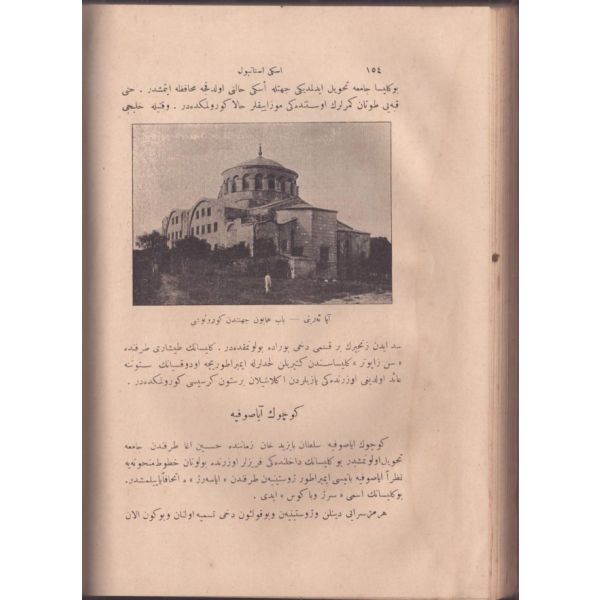 ١٥٤
اسكی استانبول
بوكلیسا جامعه تحویل ایدلدیكی جهتله أسكی حالی اولدقجه محافظه ایتمشدر . حتی
قبه‌یی طوتان كمرلرك اوستنده‌كی موزاییقلر حالا كورولمكده‌در . وقتیله خلیجی
آیا ئه‌رینی — باب همایون جهتندن كورونوشی
سد ایدن زنجیرك بر قسمی دخی بوراده بولونمقده‌در . كلیسانك طیشاری طرفنده
« سن زاپوتر » كلیساسندن كتیریلن لحدلرله ایمپراطوریچه اودوقسیانك ستوننه
عائد اولدیغی اوزرنده‌كی یازیلردن اكلاشیلان برستون كرسیسی كورولمكده‌در .
كوچوك آیاصوفیه
كوچوك ایاصوفیه سلطان بایزید خان زماننده حسین اغا طرفندن جامعه
تحویل اولونمشدر بوكلیسانك داخلنده‌كی فریزلر اوزرنده بولونان خطوط منحوته‌یه
نظراً ایاصوفیه بانیسی ایمپراطور ژوستینیه‌ن طرفندن اتحافاً یاپیلمشدر .
بوكلیسانك اسمی « سرژ وباكوس » ایدی .
هرمزسرایی دینلن وژوستینیه‌ن وبوقولئون دخی تسمیه اولنان وبوكون الان